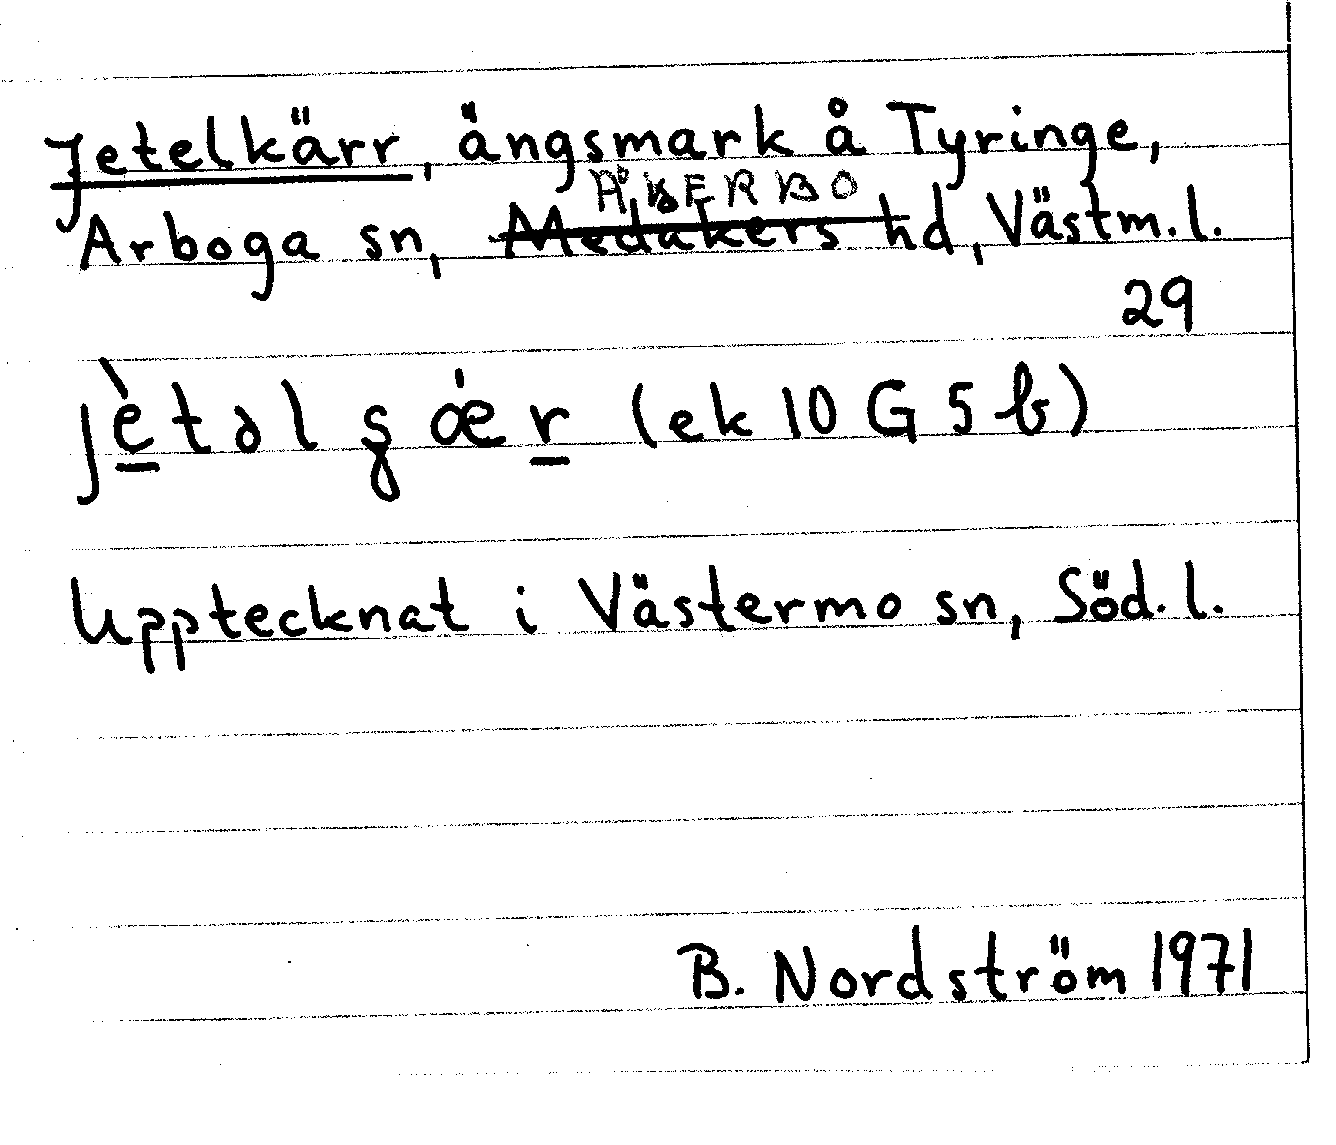 Jetelkärr, ängsmark å Tyringe,
ÅKERBO
Arboga sn, Medåkers hd, Västm. l.
29
jè̱təl ʂǽṟ (ek 10 G 5 b)
Upptecknat i Västermo sn, Söd. l.
B. Nordström 1971